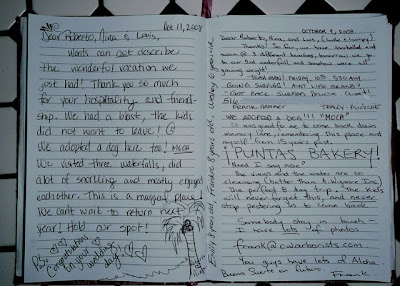 Oct 11, 2008
Dear Roberto, Nina & Louis,
Words can not describe
the wonderful vacation we
just had! Thank you so much
for your hospitality and friend-
ship. We had a blast, the kids
did not want to leave! ☺
We adopted a dog here too! MOCA
We visited three waterfalls, did
a lot of snorkling and mostly enjoyed
eachother. This is a magical place!
We cant wait to return next
year! Hold our spot!
P.S. Congratulations
on your
wedding
day!
Emily 8 years old, Frankie 8 years old, Wesley 6 years old
OCTOBER 9, 2008
Dear Roberto, Nina, and Luis,
Thanks! So far, we have snorkelled and
swam @ 3 different beaches,
to our 2nd waterfall, and
again!
5:30 AM
GOING SURFING! AINT LIFE GRAND?
FRANK
WE ADOPTED A DOG!!! "MOCA"
It was great for me to come back down
memory lane, remembering this place and
myself from 15 years past.
¡PUNTAS BAKERY!
Need I say more?
The views and the water are so
The perfect 8 day trip. The kids
will never forget this, and never
stop pestering us to come back.
Somebody stay in touch -
I have lots of photos
frank@cwarborists.com
You guys have lots of Aloha.
Buena Suerte en futuro.
Frank